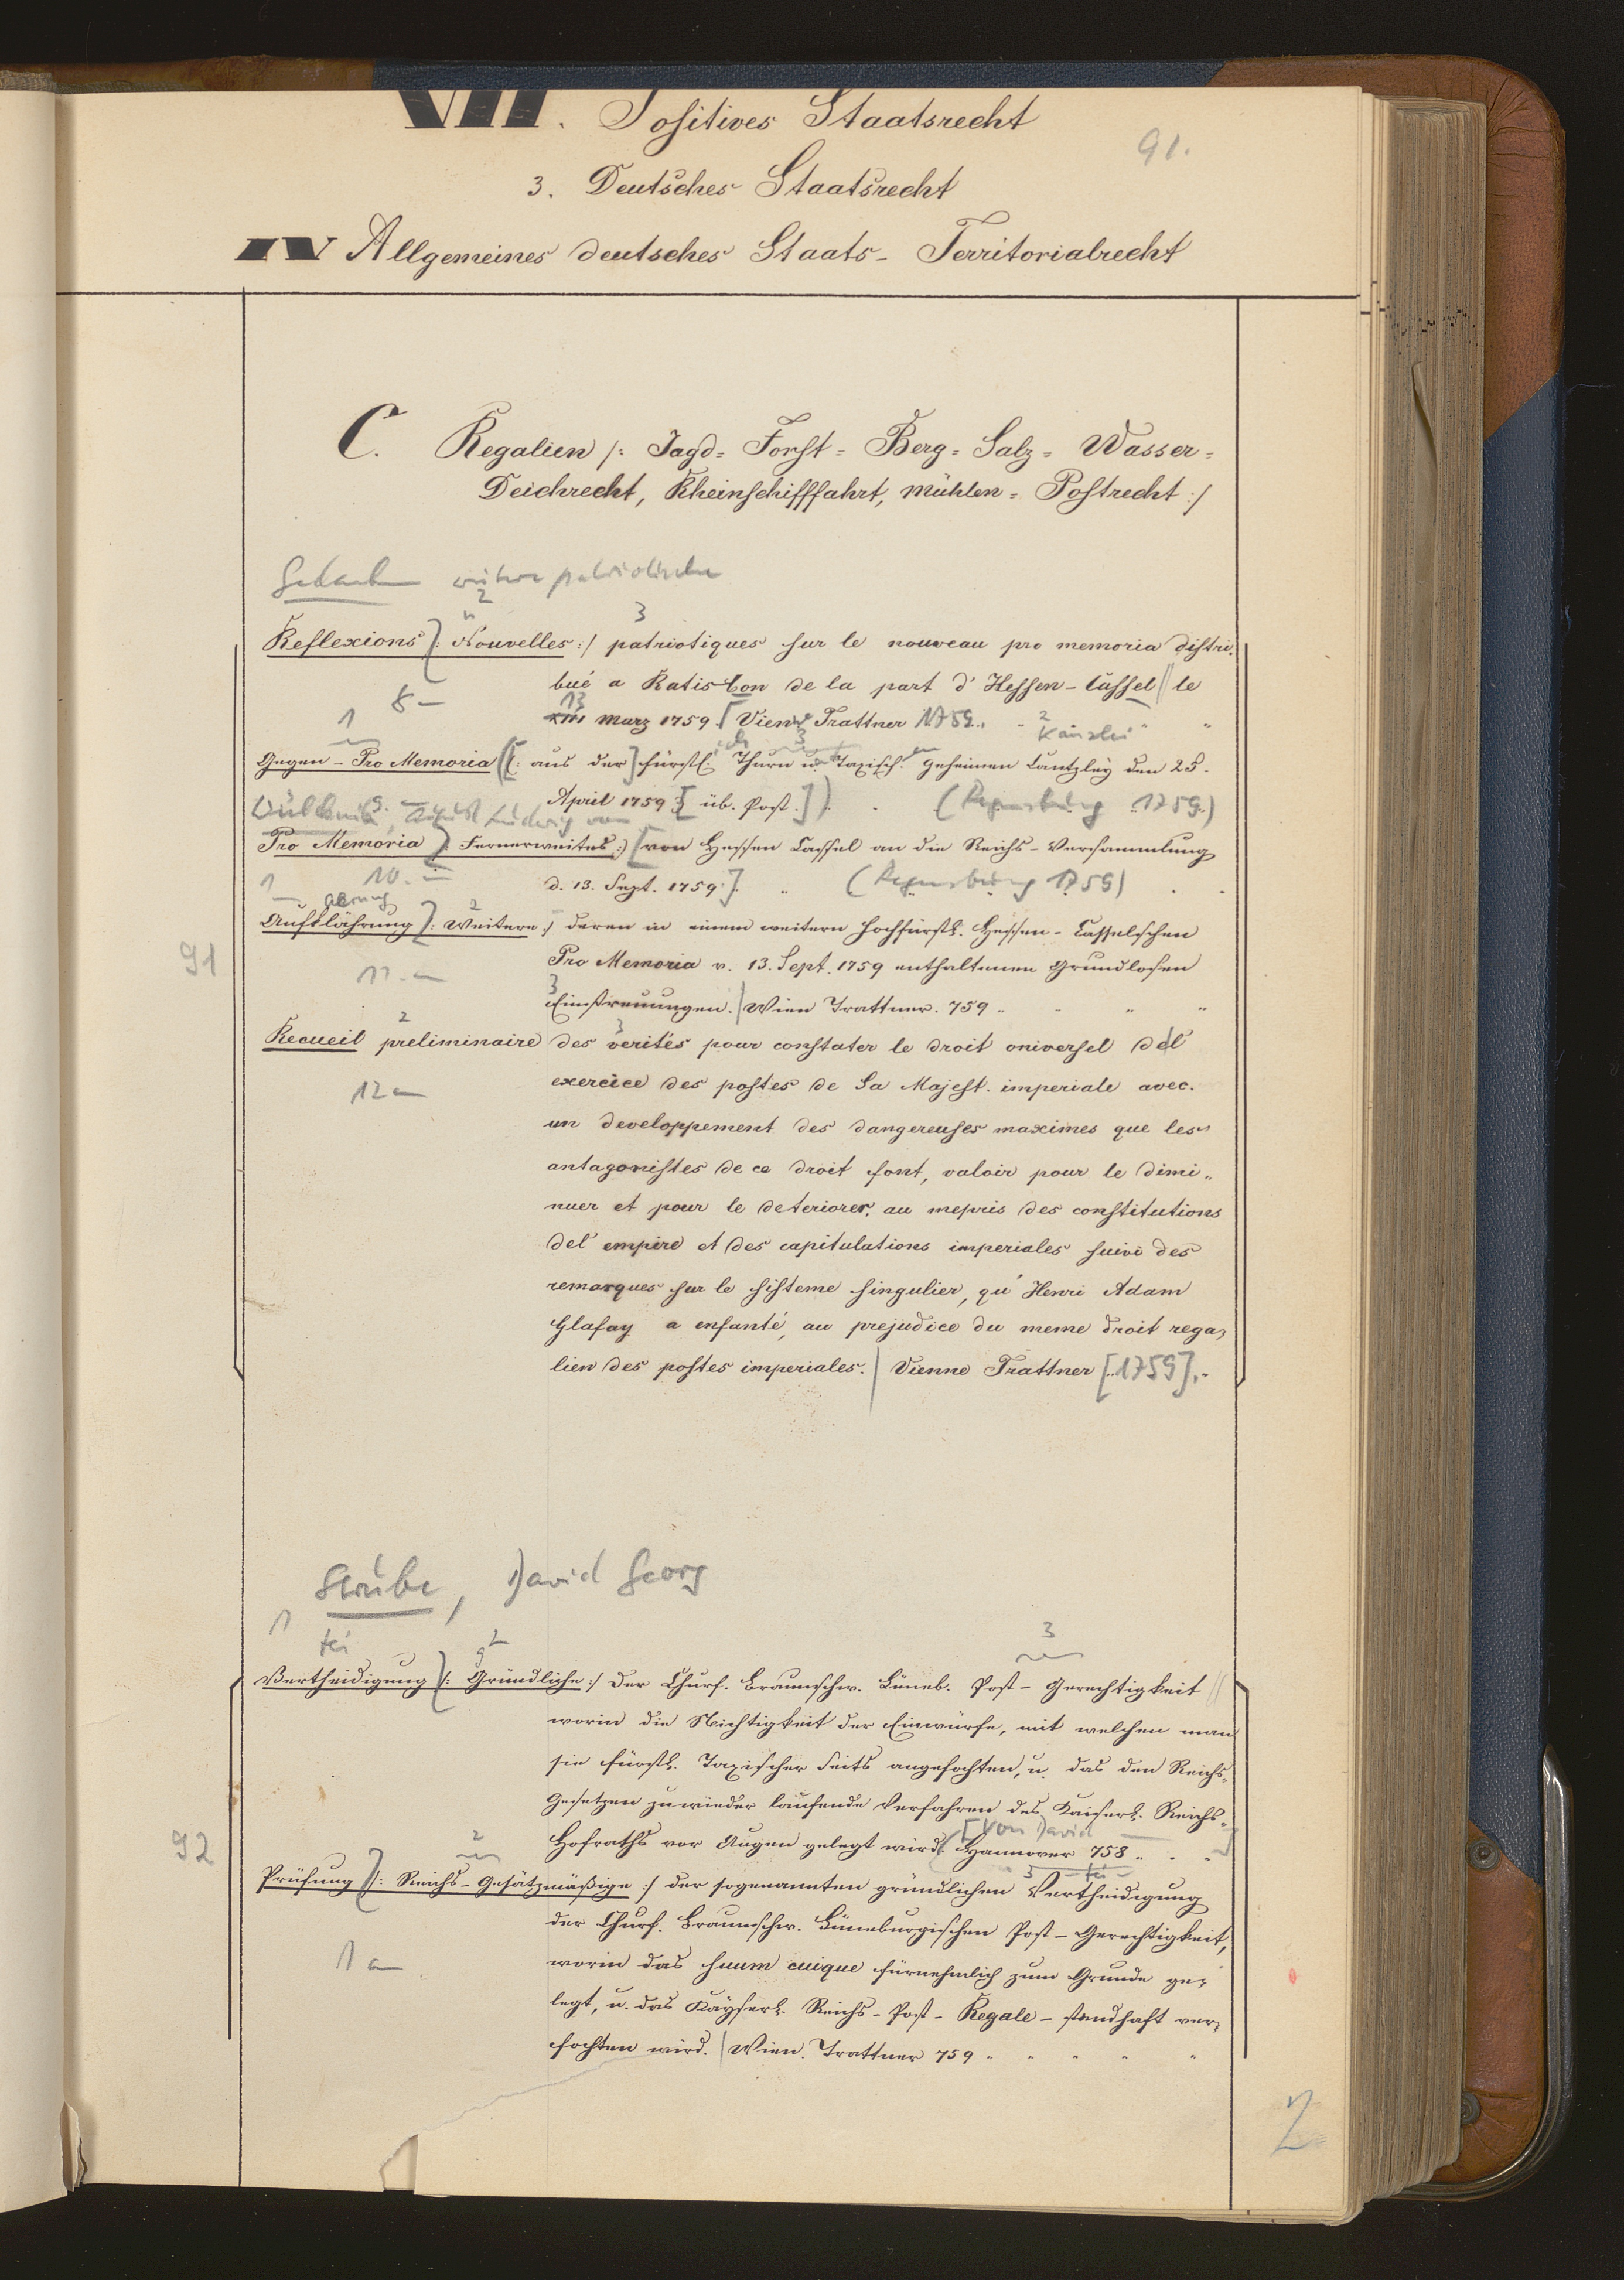 VII. Positives Staatsrecht
91.
3. Deutsches Staatsrecht
IV Allgemeines deutsches Staats- Territorialrecht
C. Regalien /: Jagd= Forst= Berg= Salz= Wasser=
Deichrecht, Rheinschifffahrt, Mühlen= Postrecht :/
patriotische
2 3
Reflexions /: Nouvelles :/ patriotiques sur le nouveau pro memoria distri-
bué a Ratisbon de la part d' Hessen-Cassel // le
8 -
13
XIII Marz 1759. [Vienne Trattner 1759.
1 3 2 Kanzlei
Gegen-Pro Memoria ([: aus der] fürstl. Thurn u. Taxisch. geheimen Cantzley den 28.
April 1759 :/ [üb. Post.]) (Regensburg 1759.)
9. - August Ludwig von
Pro Memoria /: Fernerweites :/ [von Hessen Cassel an die Reichs-Versammlung
1 10. -
d. 13. Sept. 1759.] (Regensburg 1759)
2
Aufklährung /: Weitere :/ deren in einem weitern Hochfürstl. Hessen-Casselschen
91
11. -
Pro Memoria v. 13. Sept. 1759 enthaltenen Grundlosen
3
Einstreuungen. / Wien Trattner. 759
2 3
Recueil preliminaire des verités pour constater le droit oniversel del'
12 -
exercice des postes de Sa Majest. imperiale avec.
un developpement des dangereuses maximes que les
antagonistes de ce droit font, valoir pour le dimi-
nuer et pour le deteriorer, au mepris des constitutions
del' empire et des capitulations imperiales suivi des
remarques sur le sisteme singulier, qu' Henri Adam
Glafay a enfanté, au prejudice du meme droit rega-
lien des postes imperiales. / Vienne Trattner [1759].
Strube, David Georg
1 tei 2 3
Vertheidigung /: Gründliche :/ der Churf. Braunschw. Lüneb. Post-Gerechtigkeit //
worin die Nichtigkeit der Einwürfe, mit welchen man
sie fürstl. Taxischer Seits angefochten, u. das den Reichs-
Gesetzen zuwieder laufende Verfahren des Kaiserl. Reichs-
[Von David -]
92
Hofraths vor Augen gelegt wird / Hannover 758
2 3 tei
Prüfung /: Reichs-Gesätzmäßige :/ der sogenannten gründlichen Vertheidigung
der Churf. Braunschw. Lüneburgischen Post-Gerechtigkeit,
1 a
worin das suum cuique fürnehmlich zum Grunde ge-
legt, u. das Kayserl. Reichs-Post-Regale-standhaft ver-
fochten wird. / Wien. Trattner 759
2